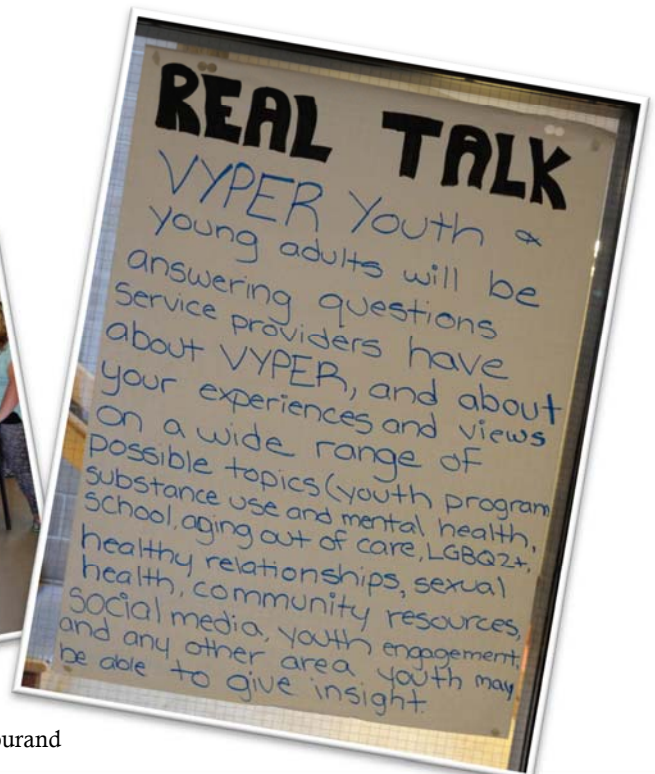 REAL TALK
VYPER Youth &
young adults will be
answering questions
service providers have
about VYPER, and about
your experiences and views
on a wide range of
possible topics (youth program
substance use and mental health,
school, aging out of care, LGBQ2+,
healthy relationships, sexual
health, community resources,
social media, youth engagement,
and any other area youth may
be able to give insight.
ourand